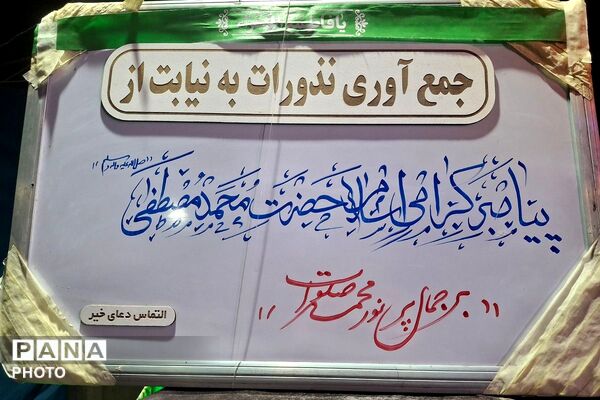 جمع آوری نذورات به نیابت از
"صلی الله علیه و آله و سلم"
پیامبر گرامی اسلام حضرت محمد مصطفی
"بر جمال پر نور محمد صلوات"
التماس دعای خیر
PANA
PHOTO